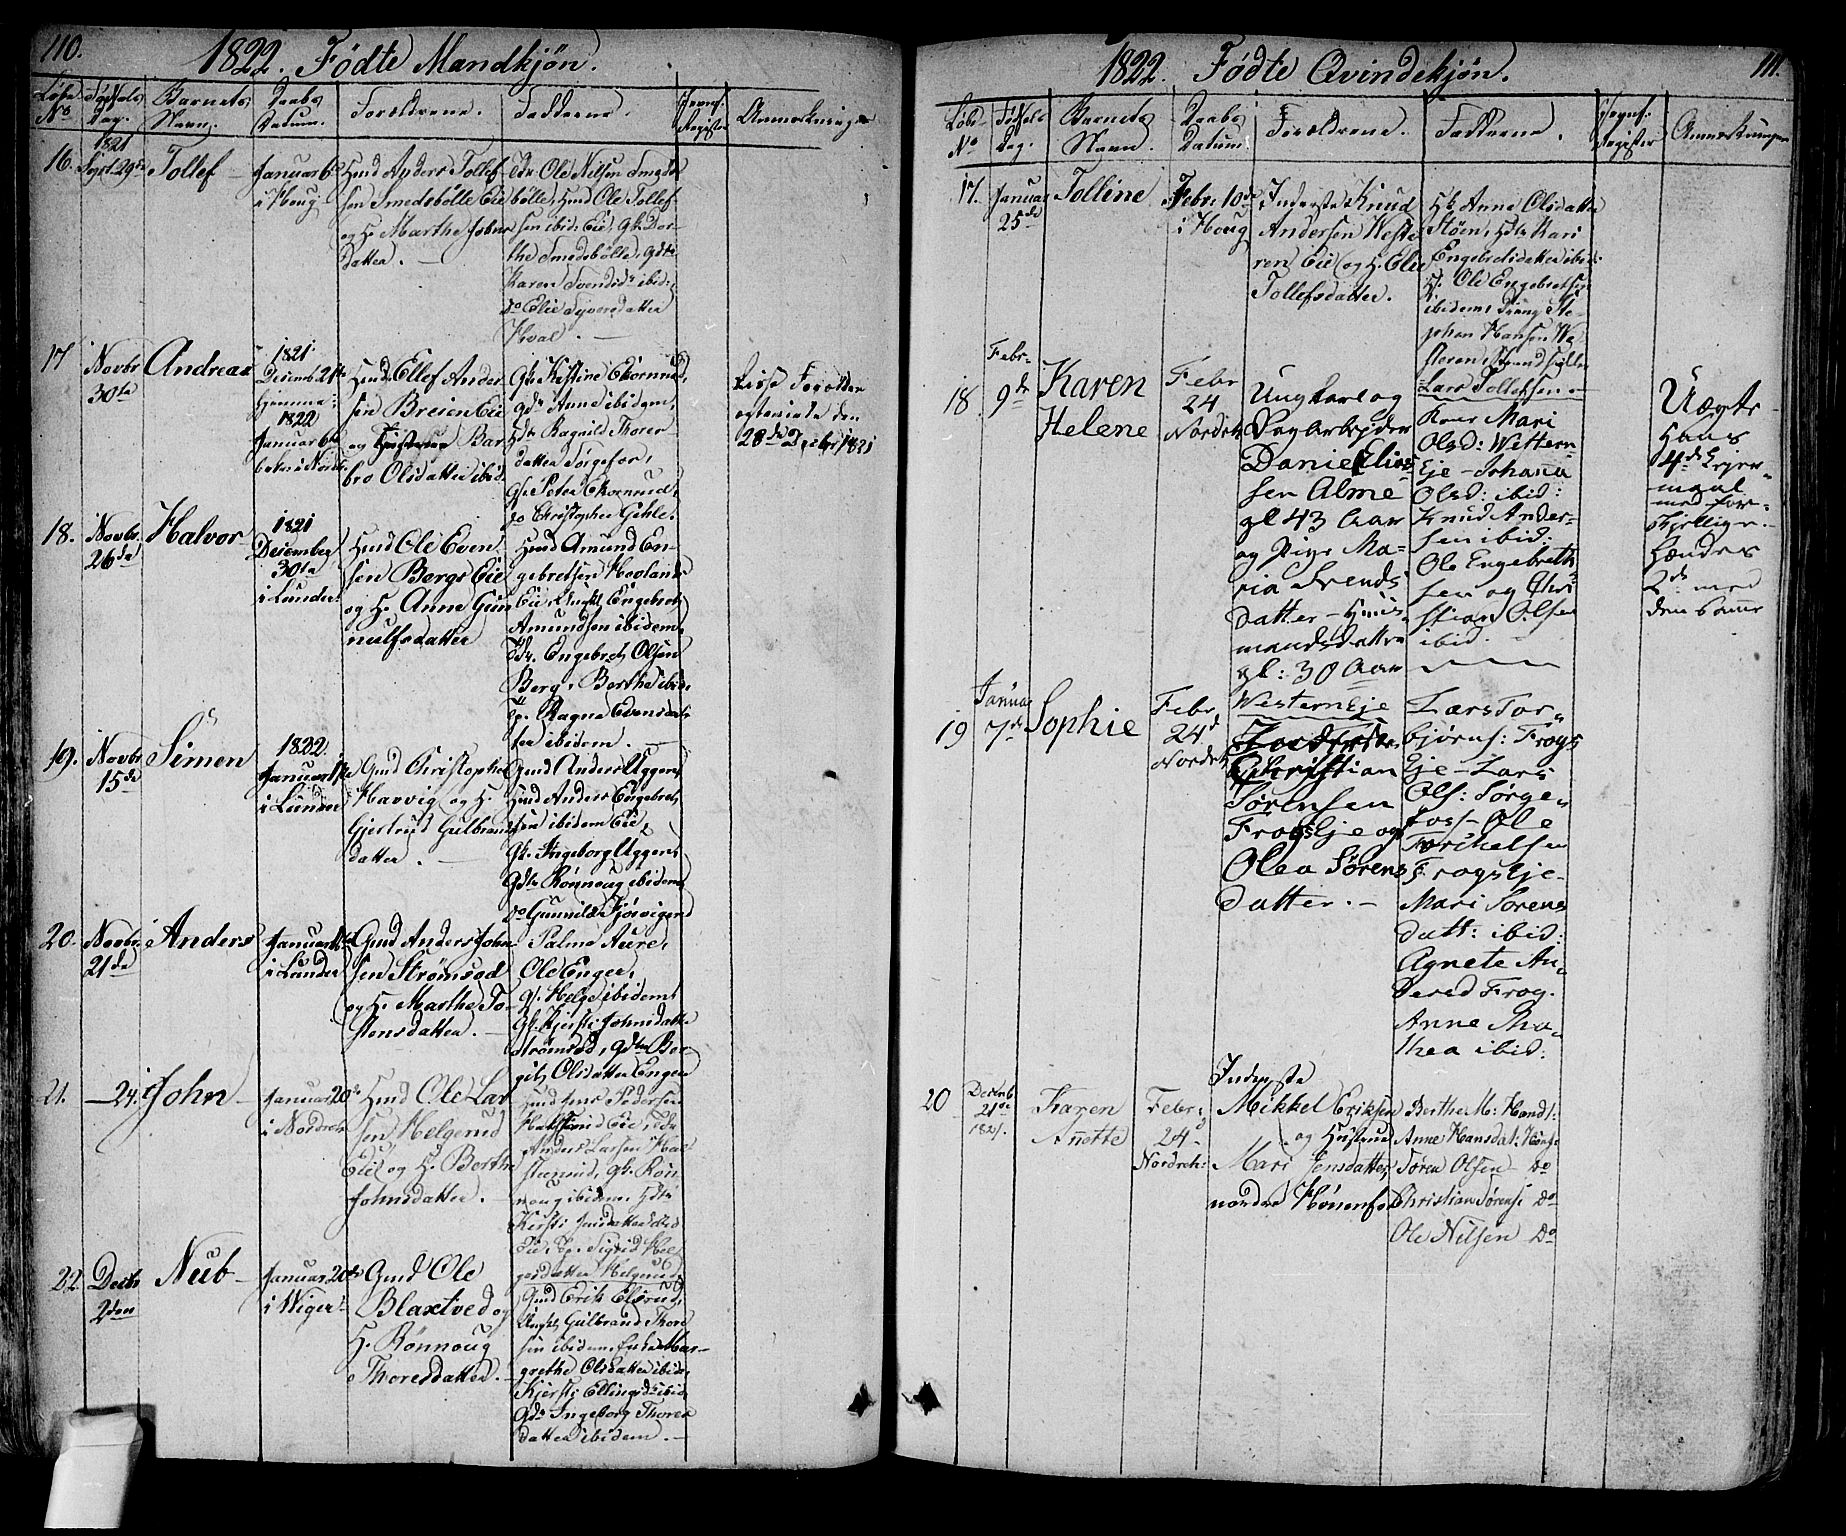 110.
1822. Fødte Mandkjøn.
Løbe No
Fødsels Dag.
Barnets Navn.
Daabs Datum.
Foreldrene.
Fadderne.
Jevnf. Register
Anmerkninger
16.
1821
Sept. 29de
Tollef
Januar 6te
i Houg
Hmd Anders Tollef
sen Smedsbølle Eie
og H. Marthe Johns
datter.
Ole Nilsen Smeds
bølle, Hmd Ole Tollef
sen ibid: Eie, Gk. Dor-
the Smedsbølle, Gdtr
Karen Svendsdr ibid:
do Elie Syversdatter
Hval.
17
Novbr
30te
Andreas
1821
Desemb 21de
hjemme:
1822
Januar 6te
i Nord:
Hmd Ellef Ander
sen Breien Eie
og Bar
bro Olsdatter ibid:
Gk. Kistine Ekornrud,
Gdr Anne ibidem,
Hdtr Ragnild Thorer
datter Sørgefos,
Gs. Peter Ekornrud,
do Christopher Gihle.
Lisse Foreldre
den
28de Decbr 1821
18.
Novbr
26de
Halvor
1821
Desember
30te
i Lunder
Hmd Ole Even
sen Bergs Eie
og H. Anne Gun
nulfsdatter
Hmd Amund En-
gebretsen Hovlands
Eie, Ungkl Engebret
Amundsen ibidem,
Engebret Olsen
Berg, Berthe ibid:
Pp. Ragne Evensdat
ter ibidem.
19.
Novbr
15de
Simen
1822
Januar 1te
i Lunder
Gmd Christopher
Harvig og H.
Gjertrud Gulbrands
datter.
Gmd Anders Uggen,
Hmd Anders Engebret
sen ibidem Eie,
Gk. Ingeborg Uggen,
Gdtr Rønnoug ibidem
do Gunnilde Sjørvigen
20.
Novbr
21de
Anders
Januar 1te
i Lunder
Gmd Anders John
sen Strømsod
og H. Marthe To
stensdatter.
Palme Aure,
Ole Enger,
Gs. Helge ibidem,
Gk. Kjersti Johnsdatter
Strømsod, Gdtr Ber
git Olsdatter Enger
21.
— 24.
John
Januar 20de
i Nordreh:
Hmd Ole Lar
sen Helgerud
Eie og H. Berthe
Johnsdatter.
Hmd Jens Pedersen
Eie,
Anders Larsen Hae
Gk. Røn
noug ibidem, Hdtr
Kirsti
Eie, Pp. Sigrid Hel
gesdatter Helgerud
22
Decbr
2den
Nub
Januar 20de
i Wiger
Gmd Ole
Blaxtved og
H. Rønnoug
Thoresdatter.
Gmd Erik Elsrud,
Ungkl Gulbrand Thore
sen ibidem, Enke Mar-
grethe Olsdatter ibid:
Kjersti Ellingsdr ibid:
Gdr Ingeborg Thores
datter ibidem.
111.
1822. Fødte Qvindekjøn.
Løbe No
Fødsels Dag.
Barnets Navn.
Daabs Datum
Foreldrene.
Fadderne.
Jevnf: Register
Anmerkninger
17.
Januar
25de
Tolline
Febr: 10de
i Houg
Inderste Knud
Andersen Weste
ren Eie og H. Elie
Tollefsdatter.
Hk. Anne Olsdatter
Støen, Hdtr Kari
Engebretsdatter ibid:
H. Ole Engebretsen
ibidem, Dreng Ste-
phan Hansen We
steren,
Lars Tollefsen
18
Febr:
9de
Karen
Helene
Febr
24
Nordreh
Ungkarl og
Dagarbejder
Daniel Elias
sen Alme
gl 43 Aar
og Pige Ma-
ria Svends
datter - Huus-
mandsdatter
gl: 30 Aar
Western Eje
Kone Mari
Olsd: Western
Eje - Johana
Olsd: ibid:
Knud Ander-
sen ibid:
Ole Engebreth
sen og Chri
stian Olsen
ibid.
Uægte
Hans
4de Lejer-
maal
med for-
skjellige.
Hendes
2det med
den samme
19
Januar
7de
Sophie
Febr
24d
Nordreh
Christian
Sørensen
Frogs Eje og
Olea Sørens
datter.
Lars Tor-
bjørns: Frogs
Eje - Lars
Ols: Sørge-
foss - Ole
Torkelsen
Frogs Eje -
Mari Sørens
datt: ibid:
Agnete An
dersd Frog.
Anne Ma-
thea ibid:
20
Decemb
21de
1821.
Karen
Anette
Febr:
24d
Nordreh:
Inderste
Mikkel Eriksen
og Hustrue
Mari Jensdatter
nordre Hønenfos
Berthe M: Hansd:
Anne Hansdat: Hønef
Søren Olsen Do
Christian Sørens: Do
Ole Nilsen Do